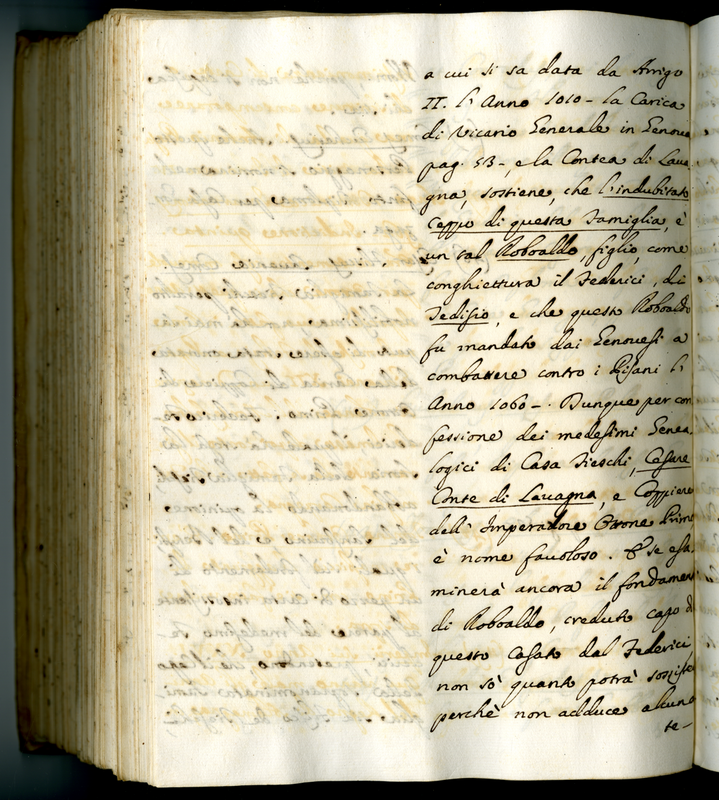 a cui si sa data da Arrigo
II. l'Anno 1010 - la Carica
di Vicario Generale in Genova
pag. 53 -, e la Contea di Lava
gna, sostiene, che l'indubitato
Ceppo di questa Famiglia, è
un tal Roboaldo, figlio, come
conghiettura il Federici, di
Tedisio, e che questo Roboaldo
fu mandato dai Genovesi a
combattere contro i Pisani l'
Anno 1060 - . Dunque per con
fessione dei medesimi Genea
logici di Casa Fieschi,
Conte di Lavagna, e Coppiere
dell' Imperadore Ottone Primo
è nome favoloso. E se esa
minerà ancora il fondamen
di Roboaldo, creduto capo d
questo Casato dal Federici
non sò quanto potrà sossiste
perchè non adduce alcuna
te-